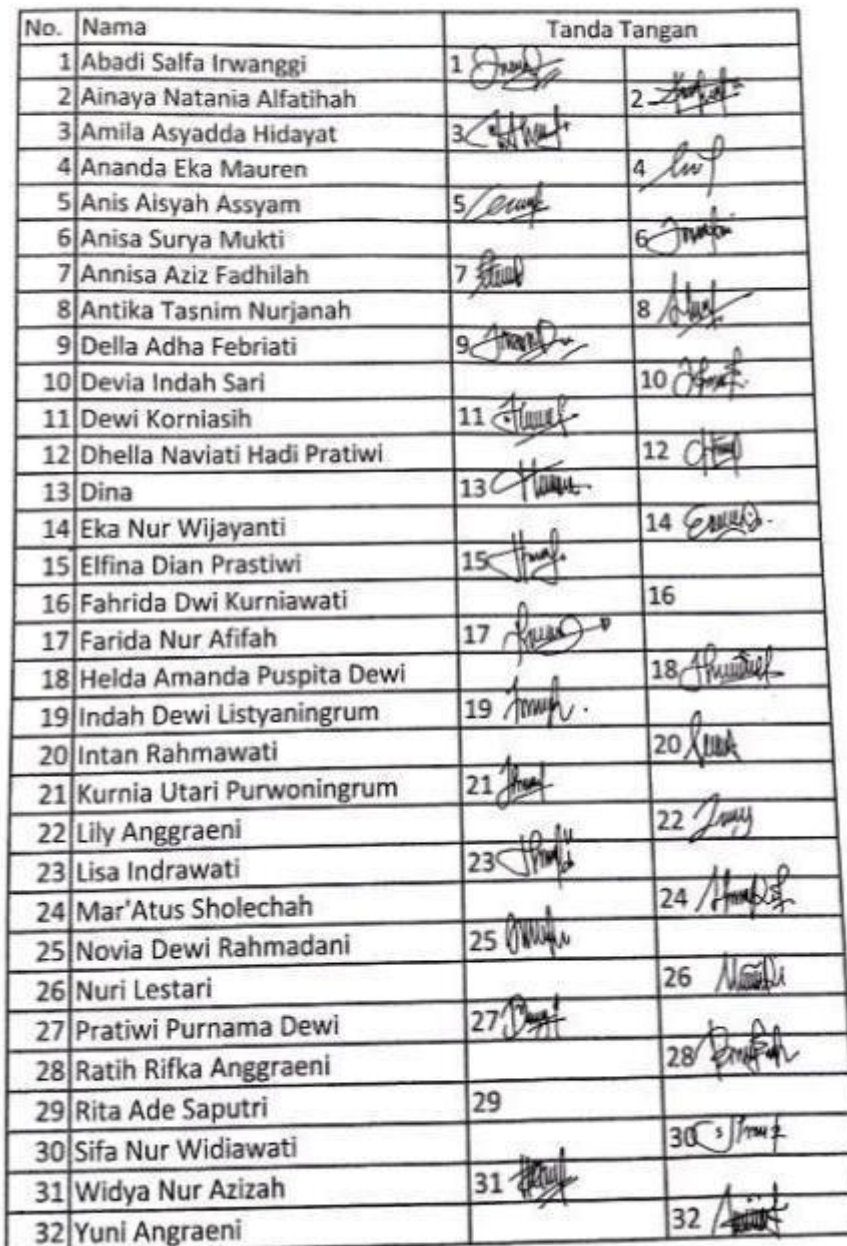 No. Nama Tanda Tangan
1 Abadi Salfa Irwanggi 1
2 Ainaya Natania Alfatihah 2
3 Amila Asyadda Hidayat 3
4 Ananda Eka Mauren 4
5 Anis Aisyah Assyam 5
6 Anisa Surya Mukti 6
7 Annisa Aziz Fadhilah 7
8 Antika Tasnim Nurjanah 8
9 Della Adha Febriati 9
10 Devia Indah Sari 10
11 Dewi Korniasih 11
12 Dhella Naviati Hadi Pratiwi 12
13 Dina 13
14 Eka Nur Wijayanti 14
15 Elfina Dian Prastiwi 15
16 Fahrida Dwi Kurniawati 16
17 Farida Nur Afifah 17
18 Helda Amanda Puspita Dewi 18
19 Indah Dewi Listyaningrum 19
20 Intan Rahmawati 20
21 Kurnia Utari Purwoningrum 21
22 Lily Anggraeni 22
23 Lisa Indrawati 23
24 Mar'Atus Sholechah 24
25 Novia Dewi Rahmadani 25
26 Nuri Lestari 26
27 Pratiwi Purnama Dewi 27
28 Ratih Rifka Anggraeni 28
29 Rita Ade Saputri 29
30 Sifa Nur Widiawati 30
31 Widya Nur Azizah 31
32 Yuni Angraeni 32